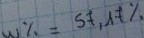 w% = 57,17%